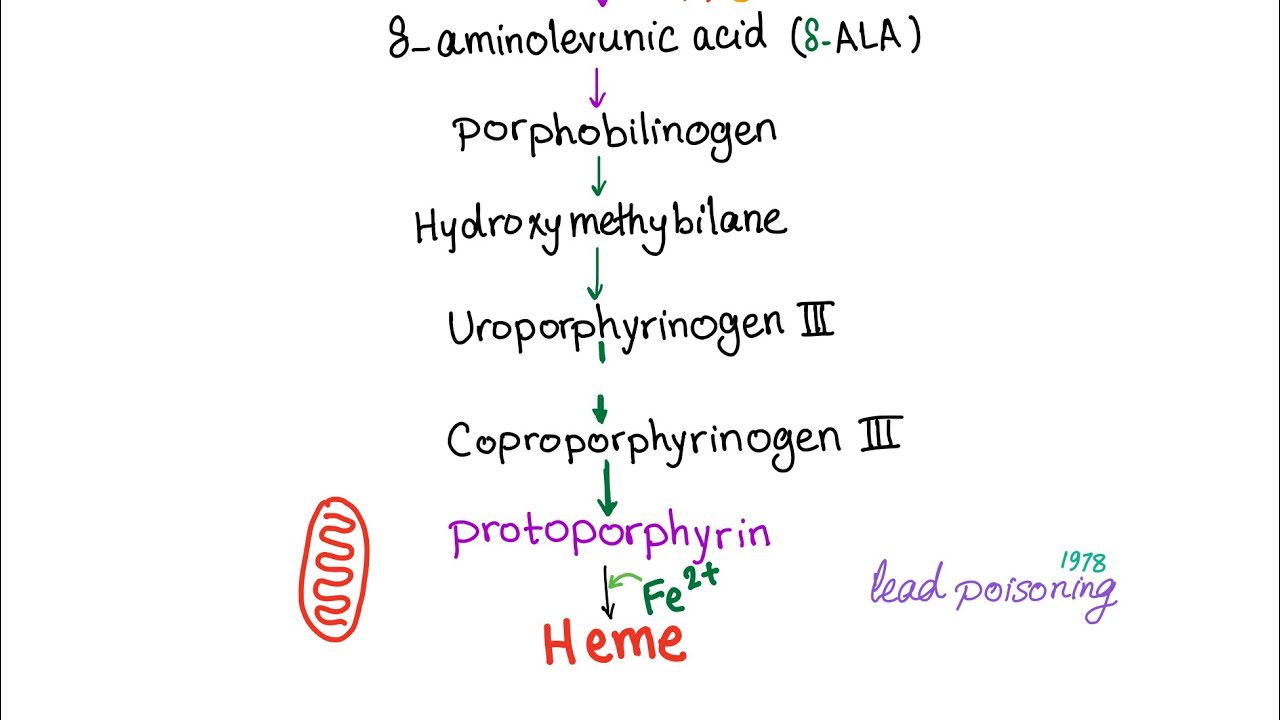 δ-aminolevunic acid (δ-ALA)
Porphobilinogen
Hydroxymethybilane
Uroporphyrinogen III
Coproporphyrinogen III
protoporphyrin
Fe²⁺
Heme
1978
lead poisoning